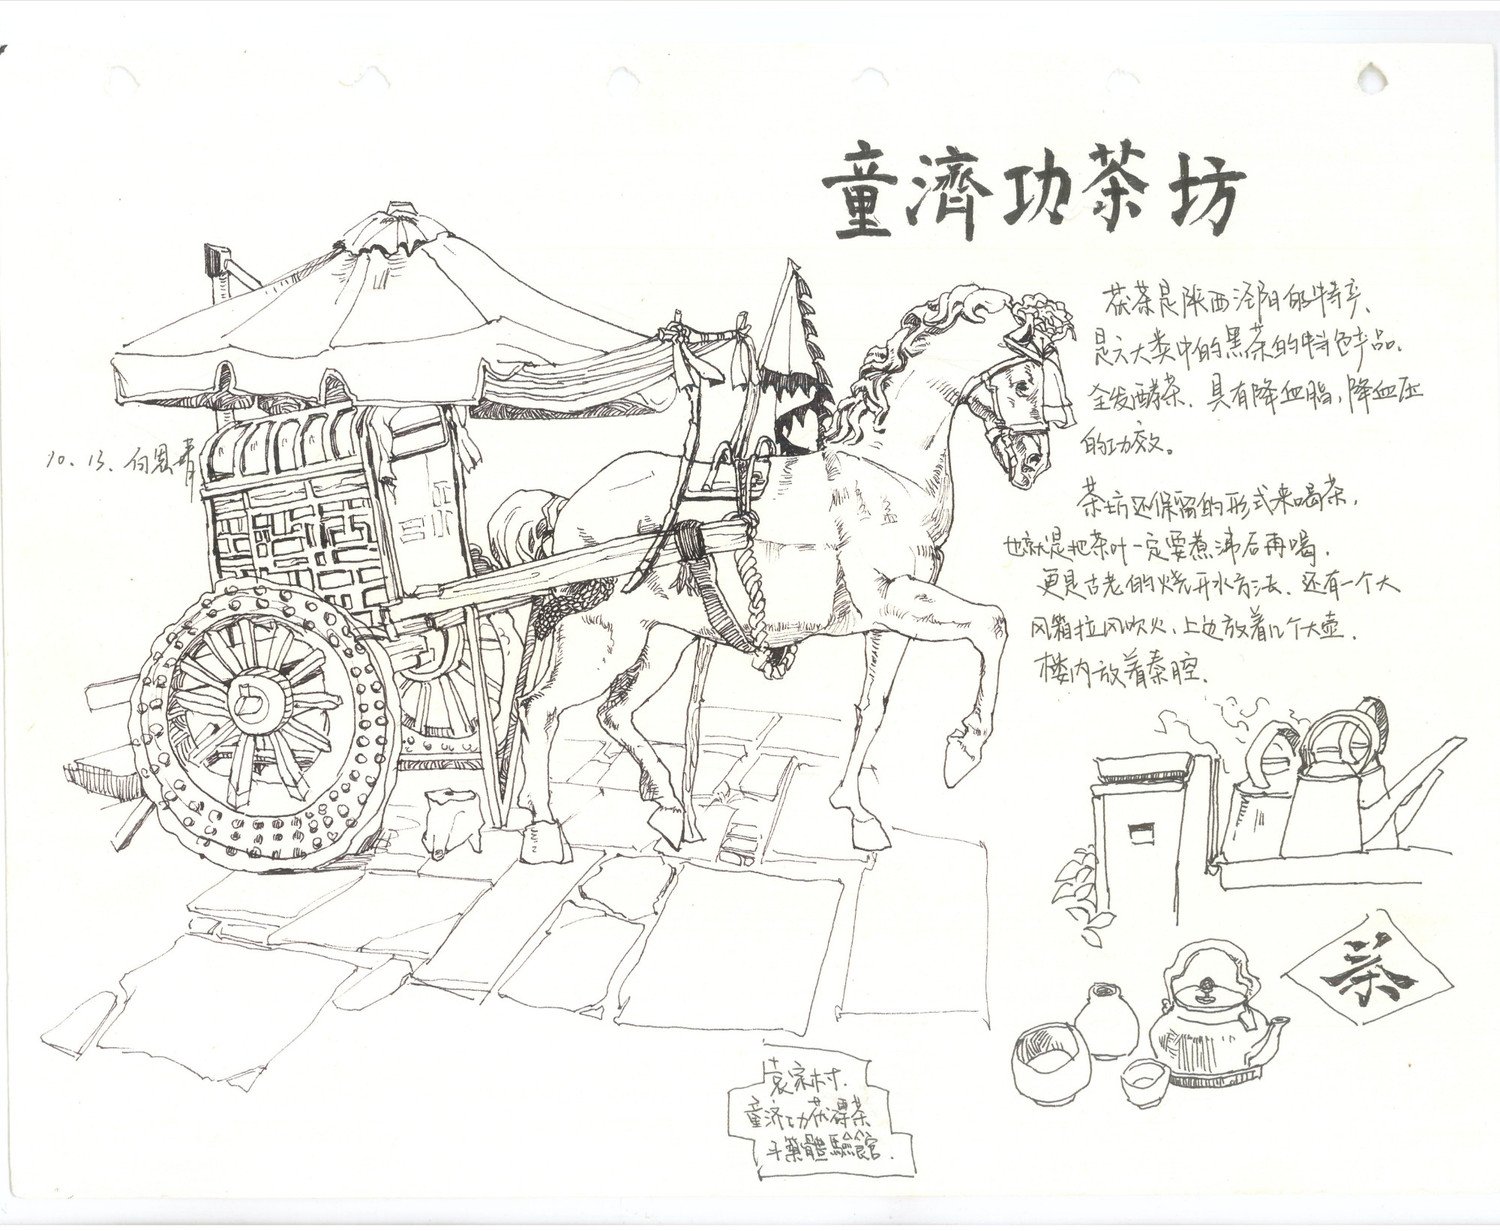 童濟功茶坊
茯茶是陕西泾阳的特产、
是六大类中的黑茶的特色产品.
全发酵茶. 具有降血脂,降血压
的功效。
茶坊还保留的形式来喝茶,
也就是把茶叶一定要煮沸后再喝.
更是古老的烧开水方法. 还有一个大
风箱拉风吹火,上边放着几个大壶.
楼内放着秦腔.
10. 13. 向
茶
袁家村.
童济功茯茶
體驗館.